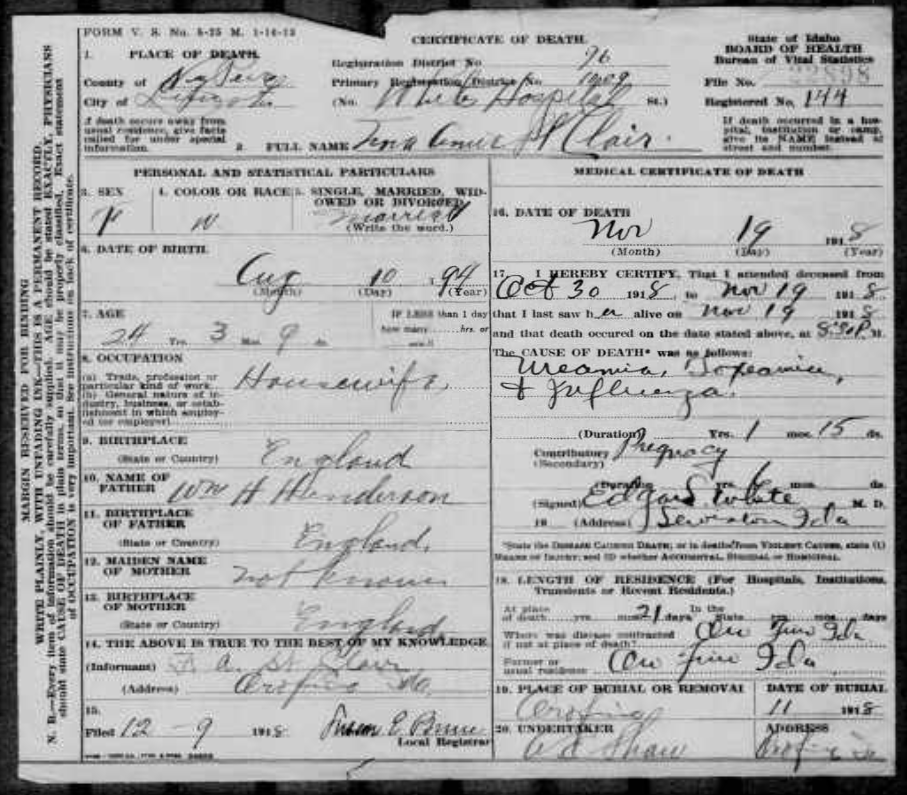 FORM V. S. No. 5-25 M. 1-14-13
CERTIFICATE OF DEATH
State of Idaho
BOARD OF HEALTH
Bureau of Vital Statistics
1. PLACE OF DEATH
Registration District No 96
File No. 22898
County of Nez Perce
Primary Registration District No 1009
Registered No. 144
City of Lewiston
(No. White Hospital St.)
If death occurs away from usual residence, give facts called for under special information.
If death occurred in a hospital, institution or camp, give its NAME instead of street and number.
2. FULL NAME St Clair.
PERSONAL AND STATISTICAL PARTICULARS
3. SEX
F
4. COLOR OR RACE
W
5. SINGLE, MARRIED, WIDOWED OR DIVORCED
Married
(Write the word.)
6. DATE OF BIRTH
Aug 10 194
(Month) (Day) (Year)
7. AGE
24 Yrs. 3 Mos. 9 ds.
IF LESS than 1 day
how many hrs. or
8. OCCUPATION
(a) Trade, profession or particular kind of work.
(b) General nature of industry, business, or establishment in which employed (or employer)
Housewife
9. BIRTHPLACE
(State or Country) England
10. NAME OF FATHER
Wm H Henderson
11. BIRTHPLACE OF FATHER
(State or Country) England.
12. MAIDEN NAME OF MOTHER
not known
13. BIRTHPLACE OF MOTHER
(State or Country) England
14. THE ABOVE IS TRUE TO THE BEST OF MY KNOWLEDGE
(Informant) A. St Clair
(Address) Orofino Ida.
15.
Filed 12 - 9 1918
Local Registrar
MEDICAL CERTIFICATE OF DEATH
16. DATE OF DEATH
Nov 19 1918
(Month) (Day) (Year)
17. I HEREBY CERTIFY, That I attended deceased from
Oct 30 1918 to Nov 19 1918
that I last saw her alive on Nov 19 1918
and that death occured on the date stated above, at 8:30 P. M.
The CAUSE OF DEATH* was as follows:
Ureamia, Toxeamia,
& Influenza.
(Duration) Yrs. 1 mos. 15 ds.
Contributory Pregnacy
(Secondary)
(Duration yrs 6 mos. ds.
(Signed) Edgar S. White M. D.
19 (Address) Lewiston Ida
*State the DISEASE CAUSING DEATH; or in deaths from VIOLENT CAUSES, state (1) MEANS OF INJURY; and (2) whether ACCIDENTAL, SUICIDAL or HOMICIDAL.
18. LENGTH OF RESIDENCE (For Hospitals, Institutions, Transients or Recent Residents.)
At place of death yrs mos 21 days In the State yrs mos days
Where was disease contracted if not at place of death? Oro Fino Ida
Former or usual residence Oro Fino Ida
19. PLACE OF BURIAL OR REMOVAL
Orofino
DATE OF BURIAL
11 1918
20. UNDERTAKER
Shaw
ADDRESS
Orofino
MARGIN RESERVED FOR BINDING
WRITE PLAINLY, WITH UNFADING INK—THIS IS A PERMANENT RECORD.
N. B.—Every item of information should be carefully supplied. AGE should be stated EXACTLY. PHYSICIANS
should state CAUSE OF DEATH in plain terms, so that it may be properly classified. Exact statement
of OCCUPATION is very important. See instructions on back of certificate.